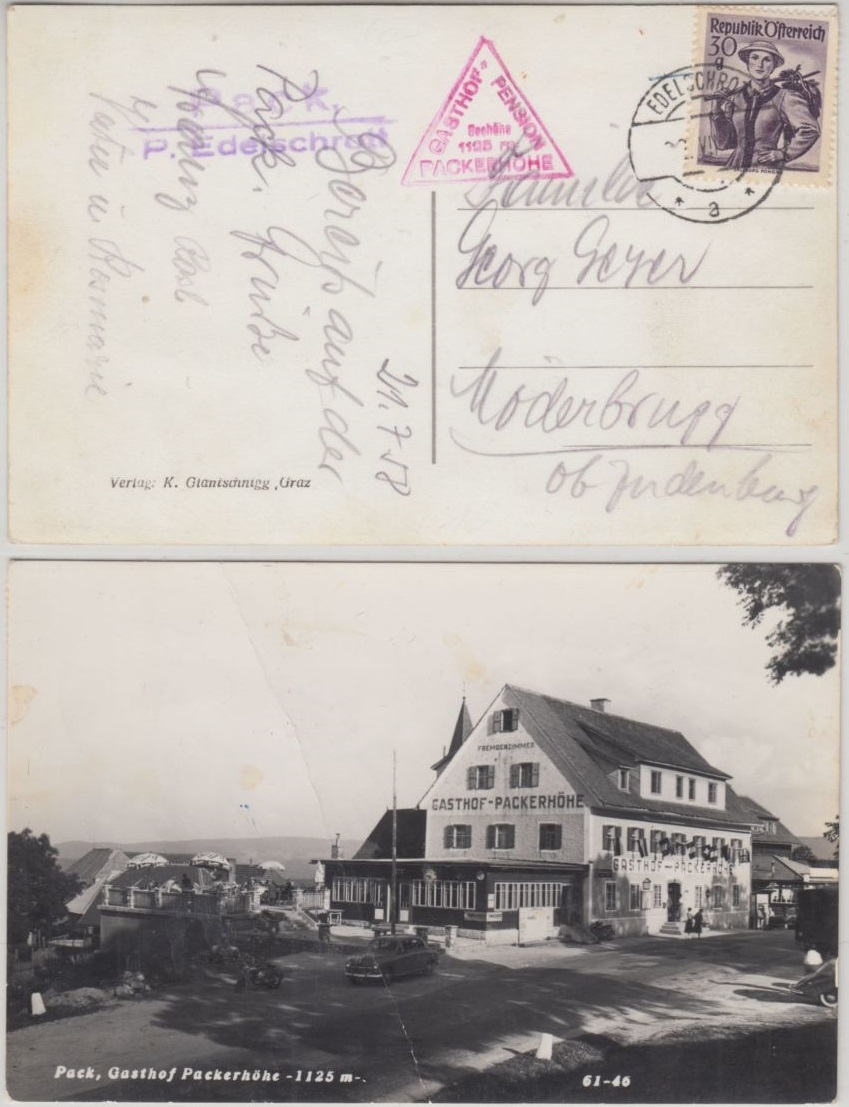 Republik Österreich
30
g
EDELSCHRO
a
GASTHOF-PENSION
Seehöhe
1125 m
PACKERHÖHE
Pack.
P. Edelschrott
21.7.58
auf der
Pack. Grüße
Vater u Rosmarie
Familie
Georg Geyer
Möderbrugg
ob Judenburg
Verlag: K. Glantschnigg, Graz
FREMDENZIMMER
GASTHOF-PACKERHÖHE
GASTHOF-PACKERHÖHE
Pack, Gasthof Packerhöhe -1125 m-.
61-46